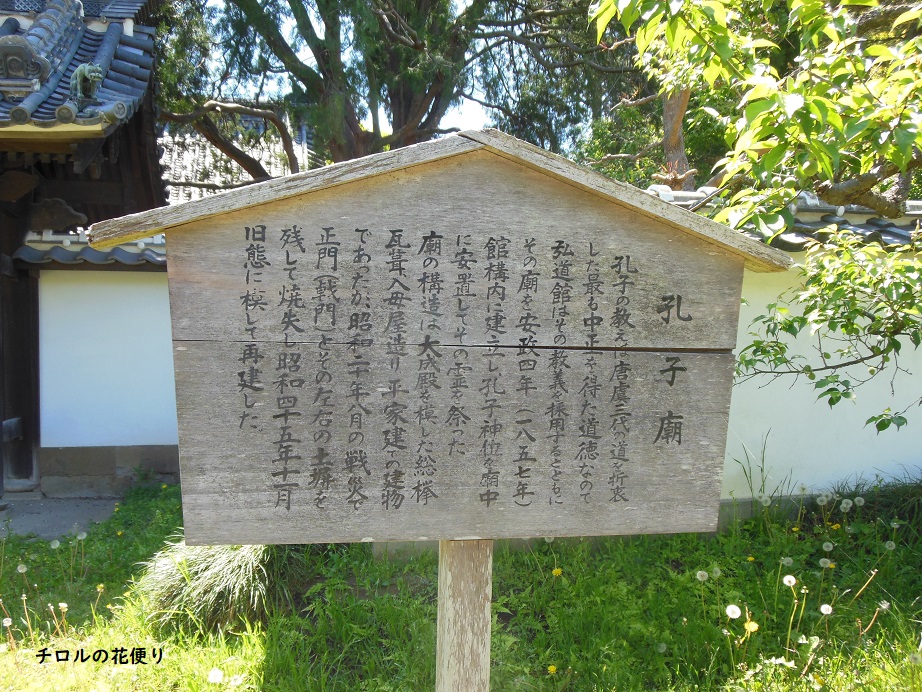 孔子廟
孔子の教えは唐虞三代の道を折衷
した最も中正を得た道徳なので
弘道館はその教義を採用するとともに
その廟を安政四年(一八五七年)
館構内に建立し、孔子神位を廟中
に安置してその霊を祭った
廟の構造は大成殿を模した総欅
瓦葺入母屋造り平家建ての建物
であったが、昭和二十年八月の戦災で
正門(戟門)とその左右の土塀を
残して焼失し昭和四十五年十一月
旧態に模して再建した。
チロルの花便り